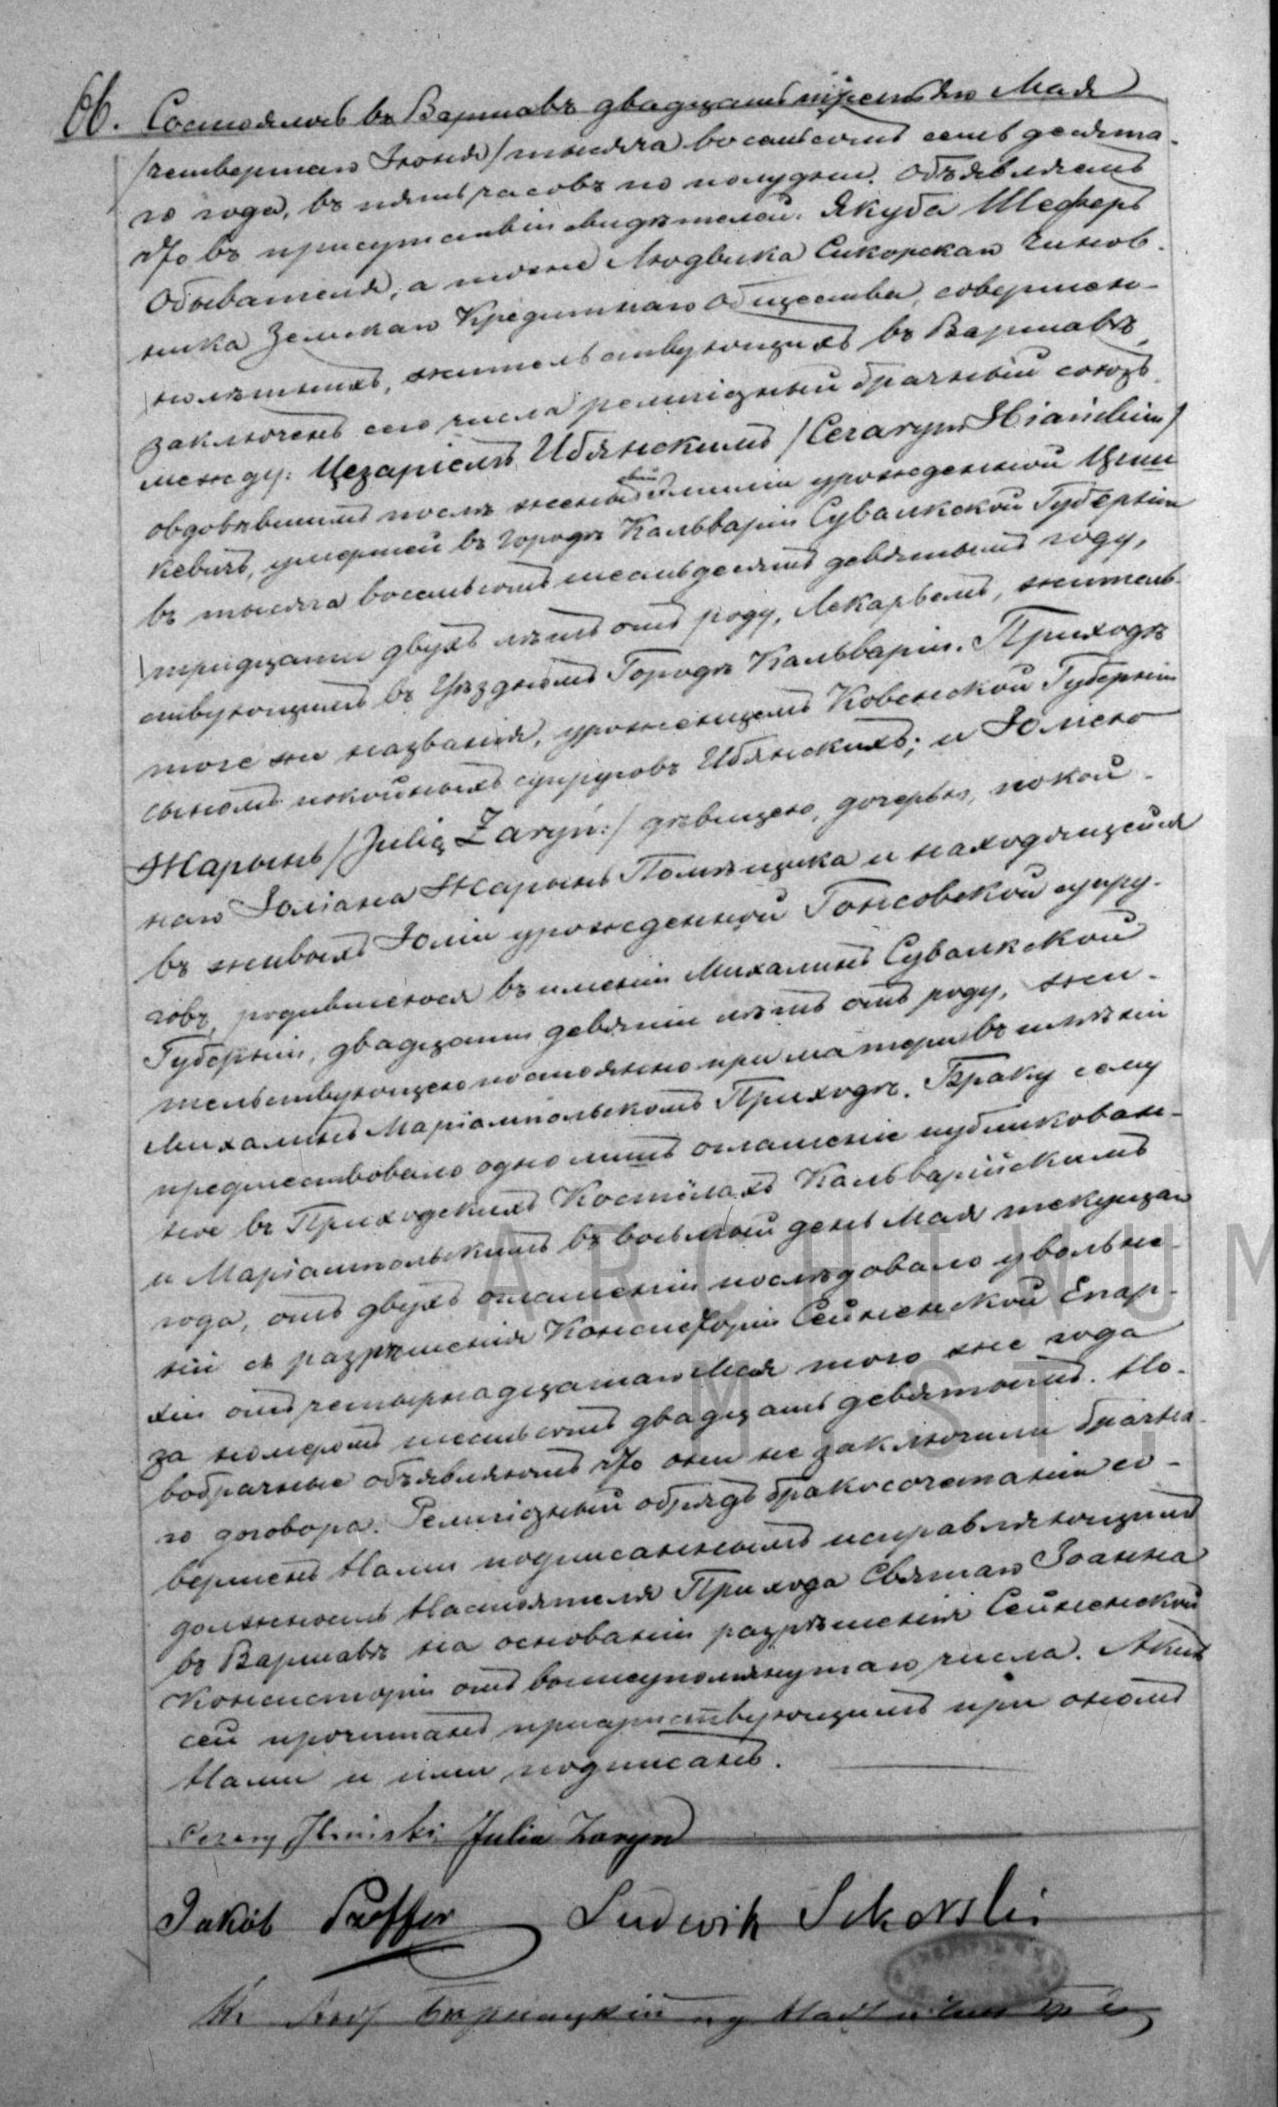 66. Состоялось въ Варшавѣ двадцать третьяго Мая
/четвертаго Іюня/ тысяча восемьсотъ семьдесята-
го года, въ пять часовъ по полудни. Объявляемъ
что въ присутствіи свидѣтелей. Якуба Шеферъ
Обывателя, а также Людвика Сикорскаго Чинов-
ника Земскаго Кредитнаго Общества, совершен-
нолѣтныхъ, жительствующихъ въ Варшавѣ,
заключенъ сего числа религіозный брачный союзъ
между: Цезаріемъ Ибянскимъ /Cezarym
овдовѣвшимъ послѣ жены Эмиліи урожденной
кевичъ, умершей въ Городѣ Кальваріи Сувалкской Губерніи
въ тысяча восемьсотъ шестьдесятъ девятомъ году,
тридцати двухъ лѣтъ отъ роду, Лекаремъ, житель-
ствующимъ въ Уѣздномъ Городѣ Кальваріи. Приходѣ
того же названія, урожденцемъ Ковенской Губерніи
сыномъ покойныхъ супруговъ Ибянскихъ; и Юліею
Жарынъ /Julią Żaryn:/ дѣвицею, дочерью, покой-
наго Юліана Жарынъ Помѣщика и находящейся
въ живыхъ Юліи урожденной Гонсовской супру-
говъ, родившеюся въ имѣніи Михалинѣ Сувалкской
Губерніи, двадцати девяти лѣтъ отъ роду, жи-
тельствующею постоянно при матери въ имѣніи
Михалинѣ Маріампольскомъ Приходѣ. Браку сему
предшествовало одно лишь оглашеніе публикован-
ное въ Приходскихъ Костёлахъ Кальварійскимъ
и Маріампольскимъ въ восьмой день Мая текущаго
года, отъ двухъ оглашеній послѣдовало увольне-
ніе съ разрѣшенія Консисторіи Сейненской Епар-
хіи отъ четырнадцатаго Мая того же года
за номеромъ шестьсотъ двадцать девятымъ. Но-
вобрачные объявляютъ что они не заключили брачна-
го договора. Религіозный обрядъ бракосочетанія со-
вершенъ Нами подписаннымъ исправляющимъ
должность Настоятеля Прихода Святаго Іоанна
въ Варшавѣ на основаніи разрѣшенія Сейненской
Консисторіи отъ вышеупомянутаго числа. Актъ
сей прочитанъ присутствующимъ при ономъ
Нами и ими подписанъ.
Cezary Julia Żaryn
Jakób Ludwik Sikorski
ARCHIWUM
M. ST.